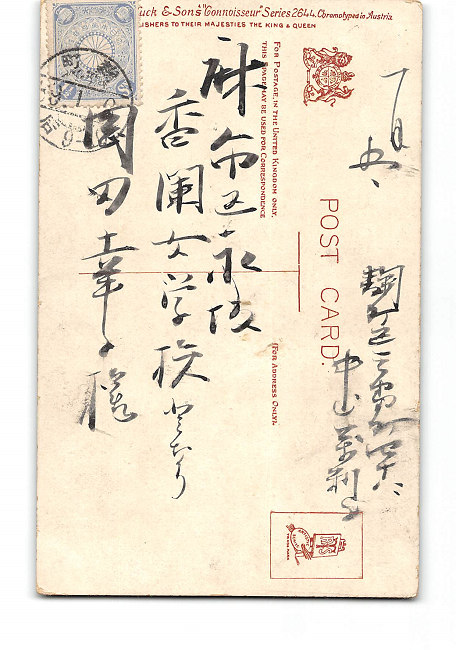 uck & Son's "Connoisseur" Series 2644. Chromotyped in Austria
LISHERS TO THEIR MAJESTIES THE KING & QUEEN
FOR POSTAGE IN THE UNITED KINGDOM ONLY,
THIS SPACE MAY BE USED FOR CORRESPONDENCE
POST CARD.
(FOR ADDRESS ONLY).
麻布区永坂
香蘭女学校
園田幸子様
一月五、
麹町区三番町四十六、